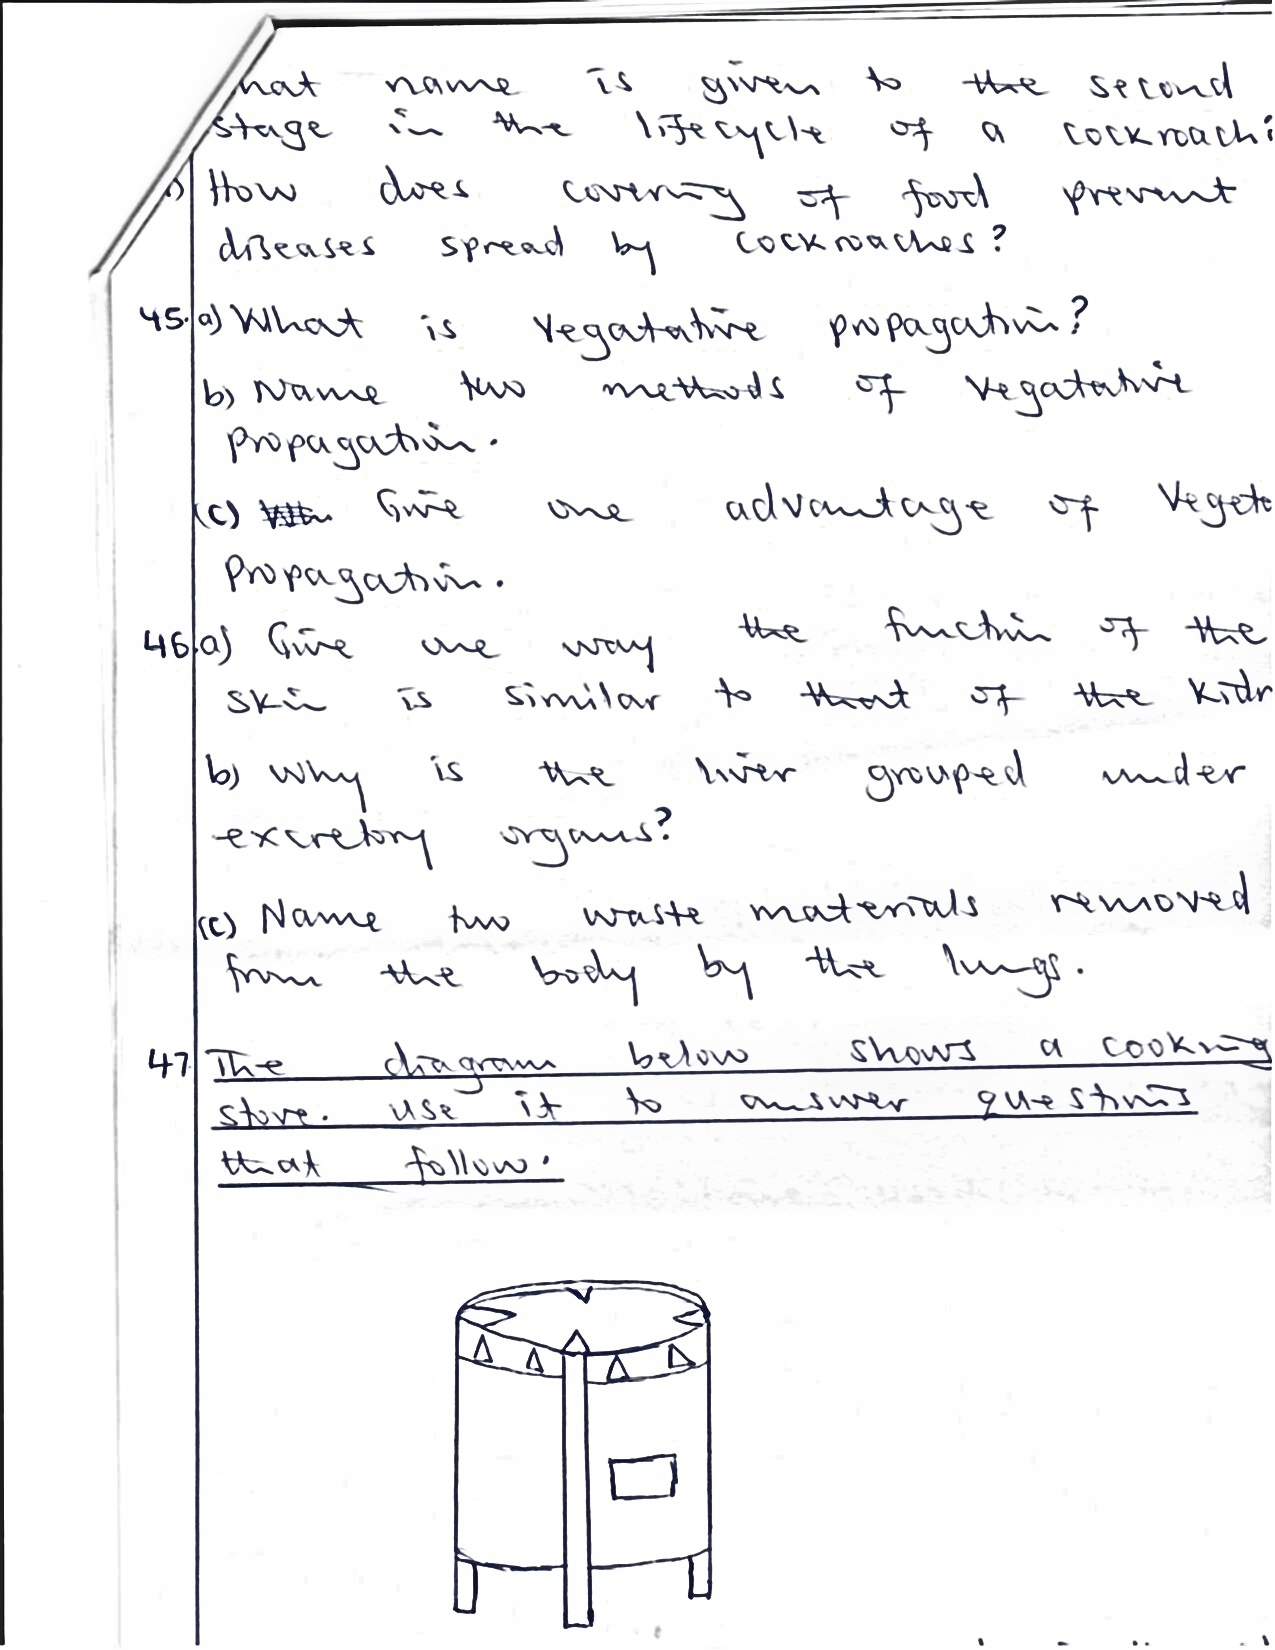 hat name is given to the second
stage in the lifecycle of a cockroach?
) How does covering of food prevent
diseases spread by cockroaches?
45. a) What is vegatative propagation?
b) Name two methods of vegatative
propagation.
(c) Give one advantage of Veget
propagation.
46. a) Give one way the function of the
skin is similar to that of the kidn
b) Why is the liver grouped under
excretory organs?
(c) Name two waste materials removed
from the body by the lungs.
47 The diagram below shows a cooking
stove. use it to answer questions
that follow.